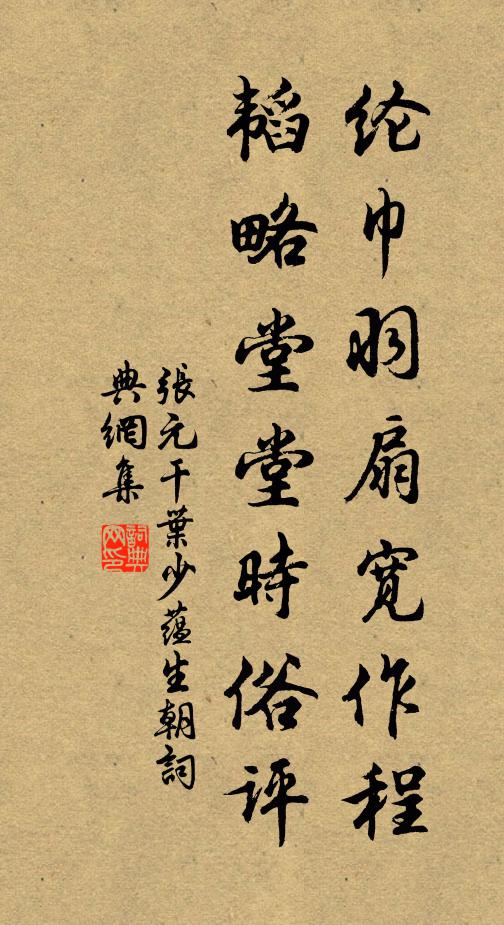 纶巾羽扇宽作程
韬略堂堂時俗评
張元干葉少蕴生朝詞
典網集
詞典
网印